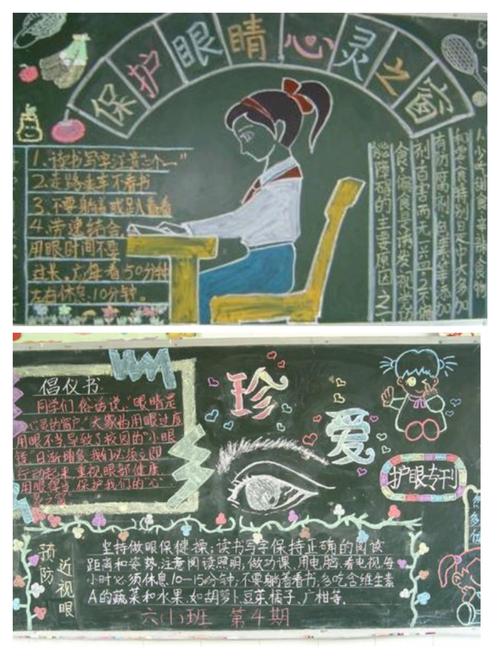 保护眼睛心灵之窗
1.读书写字注意三个一"
2.走路乘车不看书
3.不要躺着或趴着看
4.劳逸结合
用眼时间不要
过长,六每看50分钟
左右休息10分钟。
能障碍的主要原因之一
倡仪书
同学们俗话说:"眼睛是
心灵的窗户"大家的用眼过度
用眼不当导致了校园的"小眼
镜"日渐增多我们必须立即
行动起来重视眼部健康
用眼卫生保护我们的心
灵之窗
珍爱
护眼专刊
预防近视眼
坚持做眼保健操;读书写字保持正确的阅读
距离和姿势,注意阅读照明,做功课,用电脑,看电视每
小时必须休息10—15分钟;不要躺着看书,多吃含维生素
A的蔬菜和水果,如胡萝卜豆菜橘子,广柑等.
六(1)班 第4期